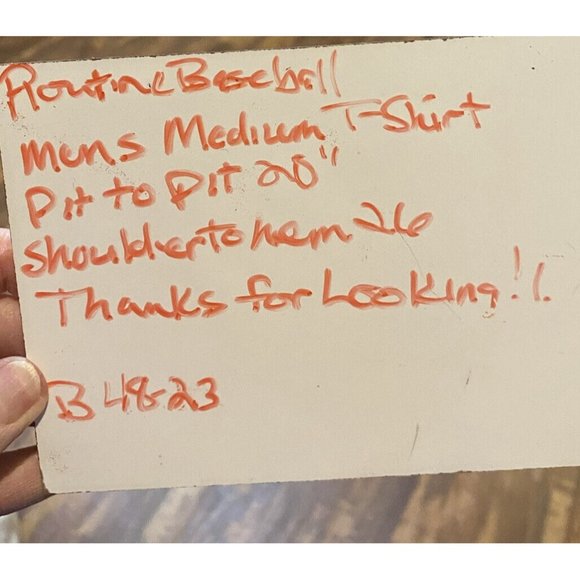 Routine Baseball
mens Medium T-Shirt
Pit to Pit 20"
Shoulder to hem 26
Thanks for Looking!!
B 48-23